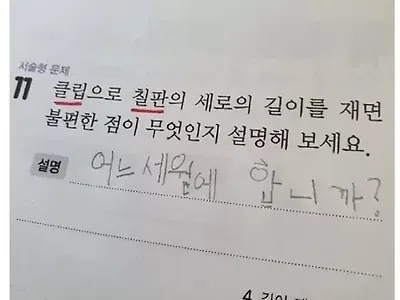 서술형 문제
11 클립으로 칠판의 세로의 길이를 재면
불편한 점이 무엇인지 설명해 보세요.
설명 어느세월에 합니까?
4. 길이